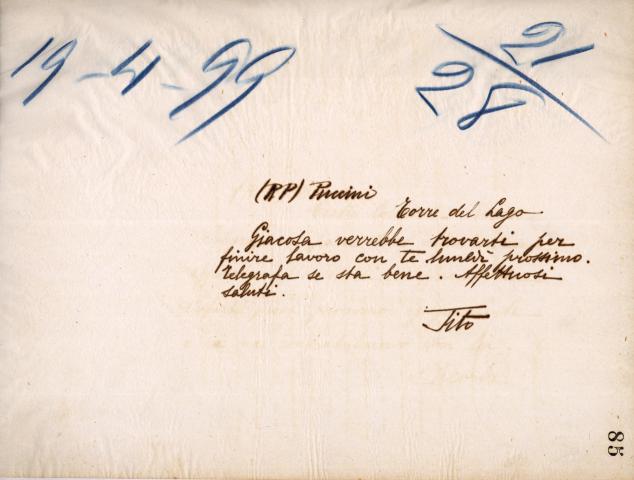 19-4-99
21
28
(RP) Puccini
Torre del Lago
Giacosa verrebbe trovarti per
finire lavoro con te lunedì prossimo.
Telegrafa se sta bene. Affettuosi
saluti.
Tito
85